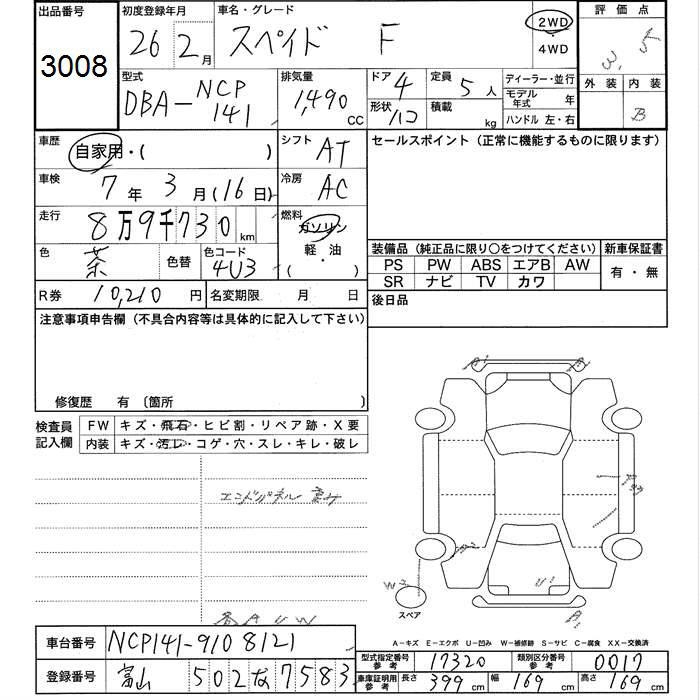 出品番号
3008
初度登録年月
26 2月
車名・グレード
スペイド F
2WD
・
4WD
評価点
3.5
外装 内装
B
型式
DBA-NCP
141
排気量
1,490
CC
ドア 4
形状 ハコ
定員 5 人
積載 kg
ディーラー・並行
モデル年式 年
ハンドル 左・右
車歴
自家用・( )
シフト
AT
セールスポイント（正常に機能するものに限ります）
車検
7年 3月(16日)
冷房
AC
走行
8万9千730km
燃料
ガソリン
軽・油
・
( )
色
茶
色替
色コード
4U3
装備品（純正品に限り○をつけてください）
新車保証書
PS PW ABS エアB AW
SR ナビ TV カワ
有・無
R券 10,210 円
名変期限 月 日
後日品
注意事項申告欄（不具合内容等は具体的に記入して下さい）
修復歴 有 〔箇所 〕
検査員
記入欄
FW キズ・飛石・ヒビ割・リペア跡・X要
内装 キズ・汚レ・コゲ・穴・スレ・キレ・破レ
スペア
A－キズ E－エクボ U－凹み W－補修跡 S－サビ C－腐食 XX－交換済
車台番号 NCP141-9108121
登録番号 富山 502な7583
型式指定番号
参考
17320
類別区分番号
参考
0017
車庫証明用
参考
長さ 399cm
幅 169cm
高さ 169cm